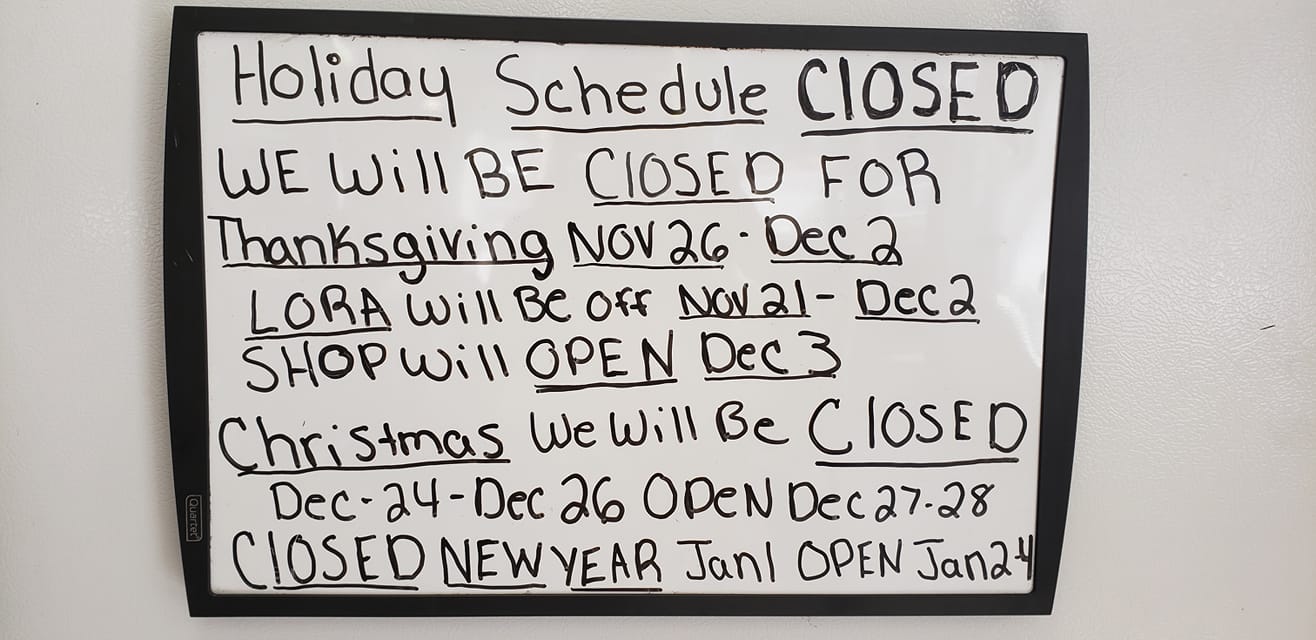 Holiday Schedule ClOSED
WE Will BE ClOSED FOR
Thanksgiving NOV 26 - Dec 2
LORA Will Be Off Nov 21 - Dec 2
SHOP Will OPEN Dec 3
Christmas We Will Be ClOSED
Dec - 24 - Dec 26 OPeN Dec 27-28
ClOSED NEW YEAR Jan 1 OPEN Jan 2-4
Quartet